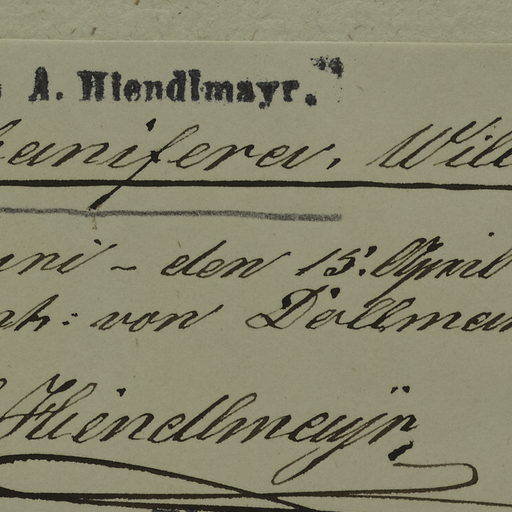 A. Hiendlmayr.
anifera, Will
ni - den 15. April
von Dollman
Hiendlmayr,